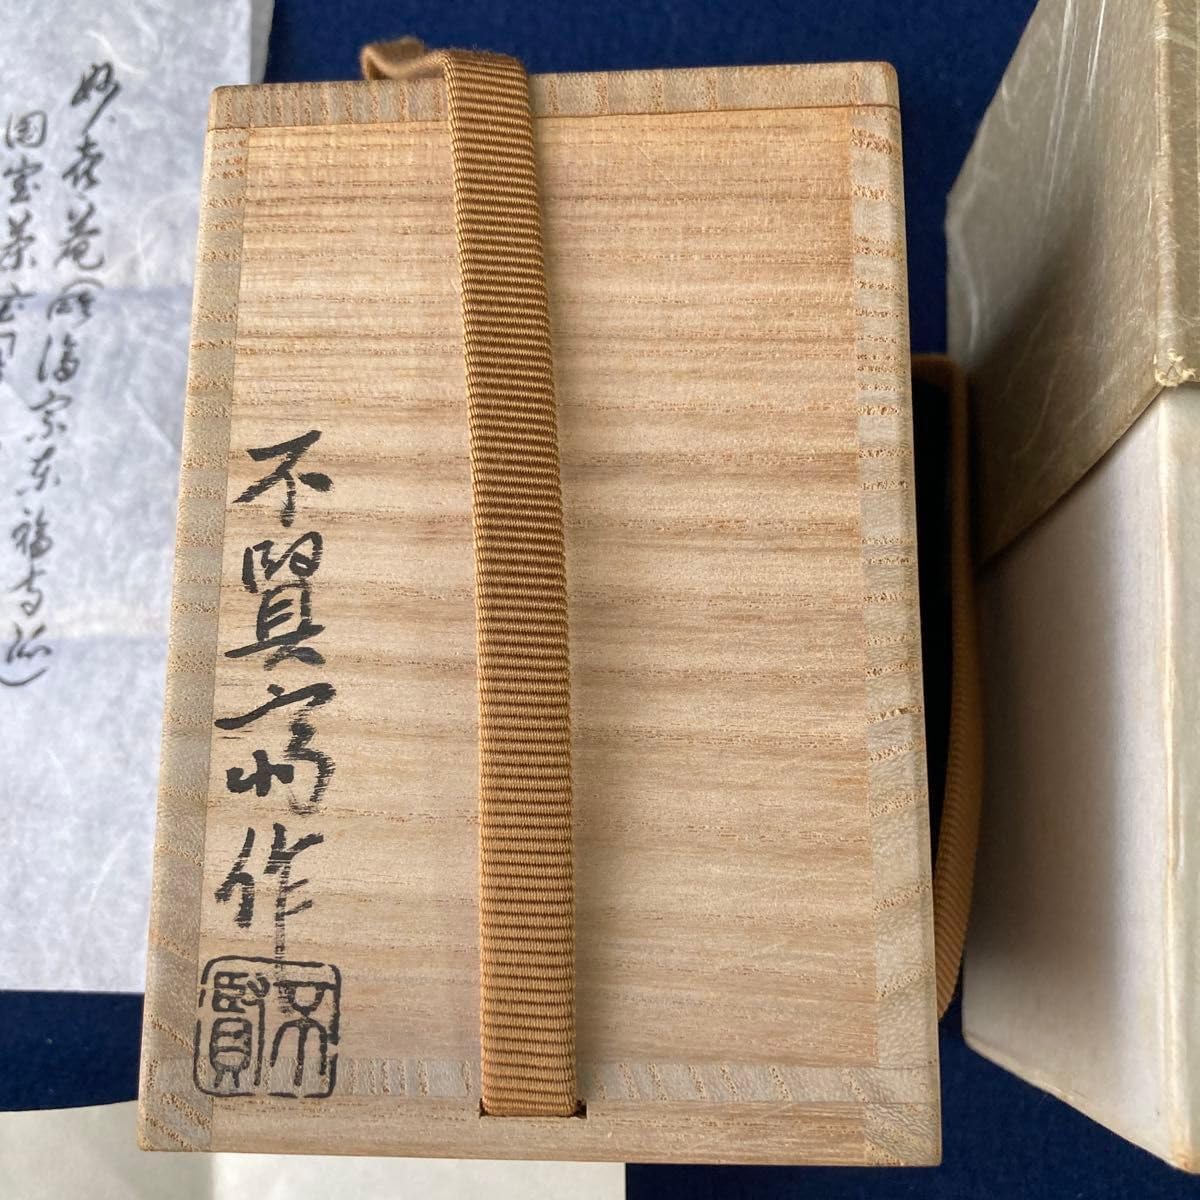 不賢
作
不賢
妙喜菴(臨済宗東福寺派)
国宝茶室「